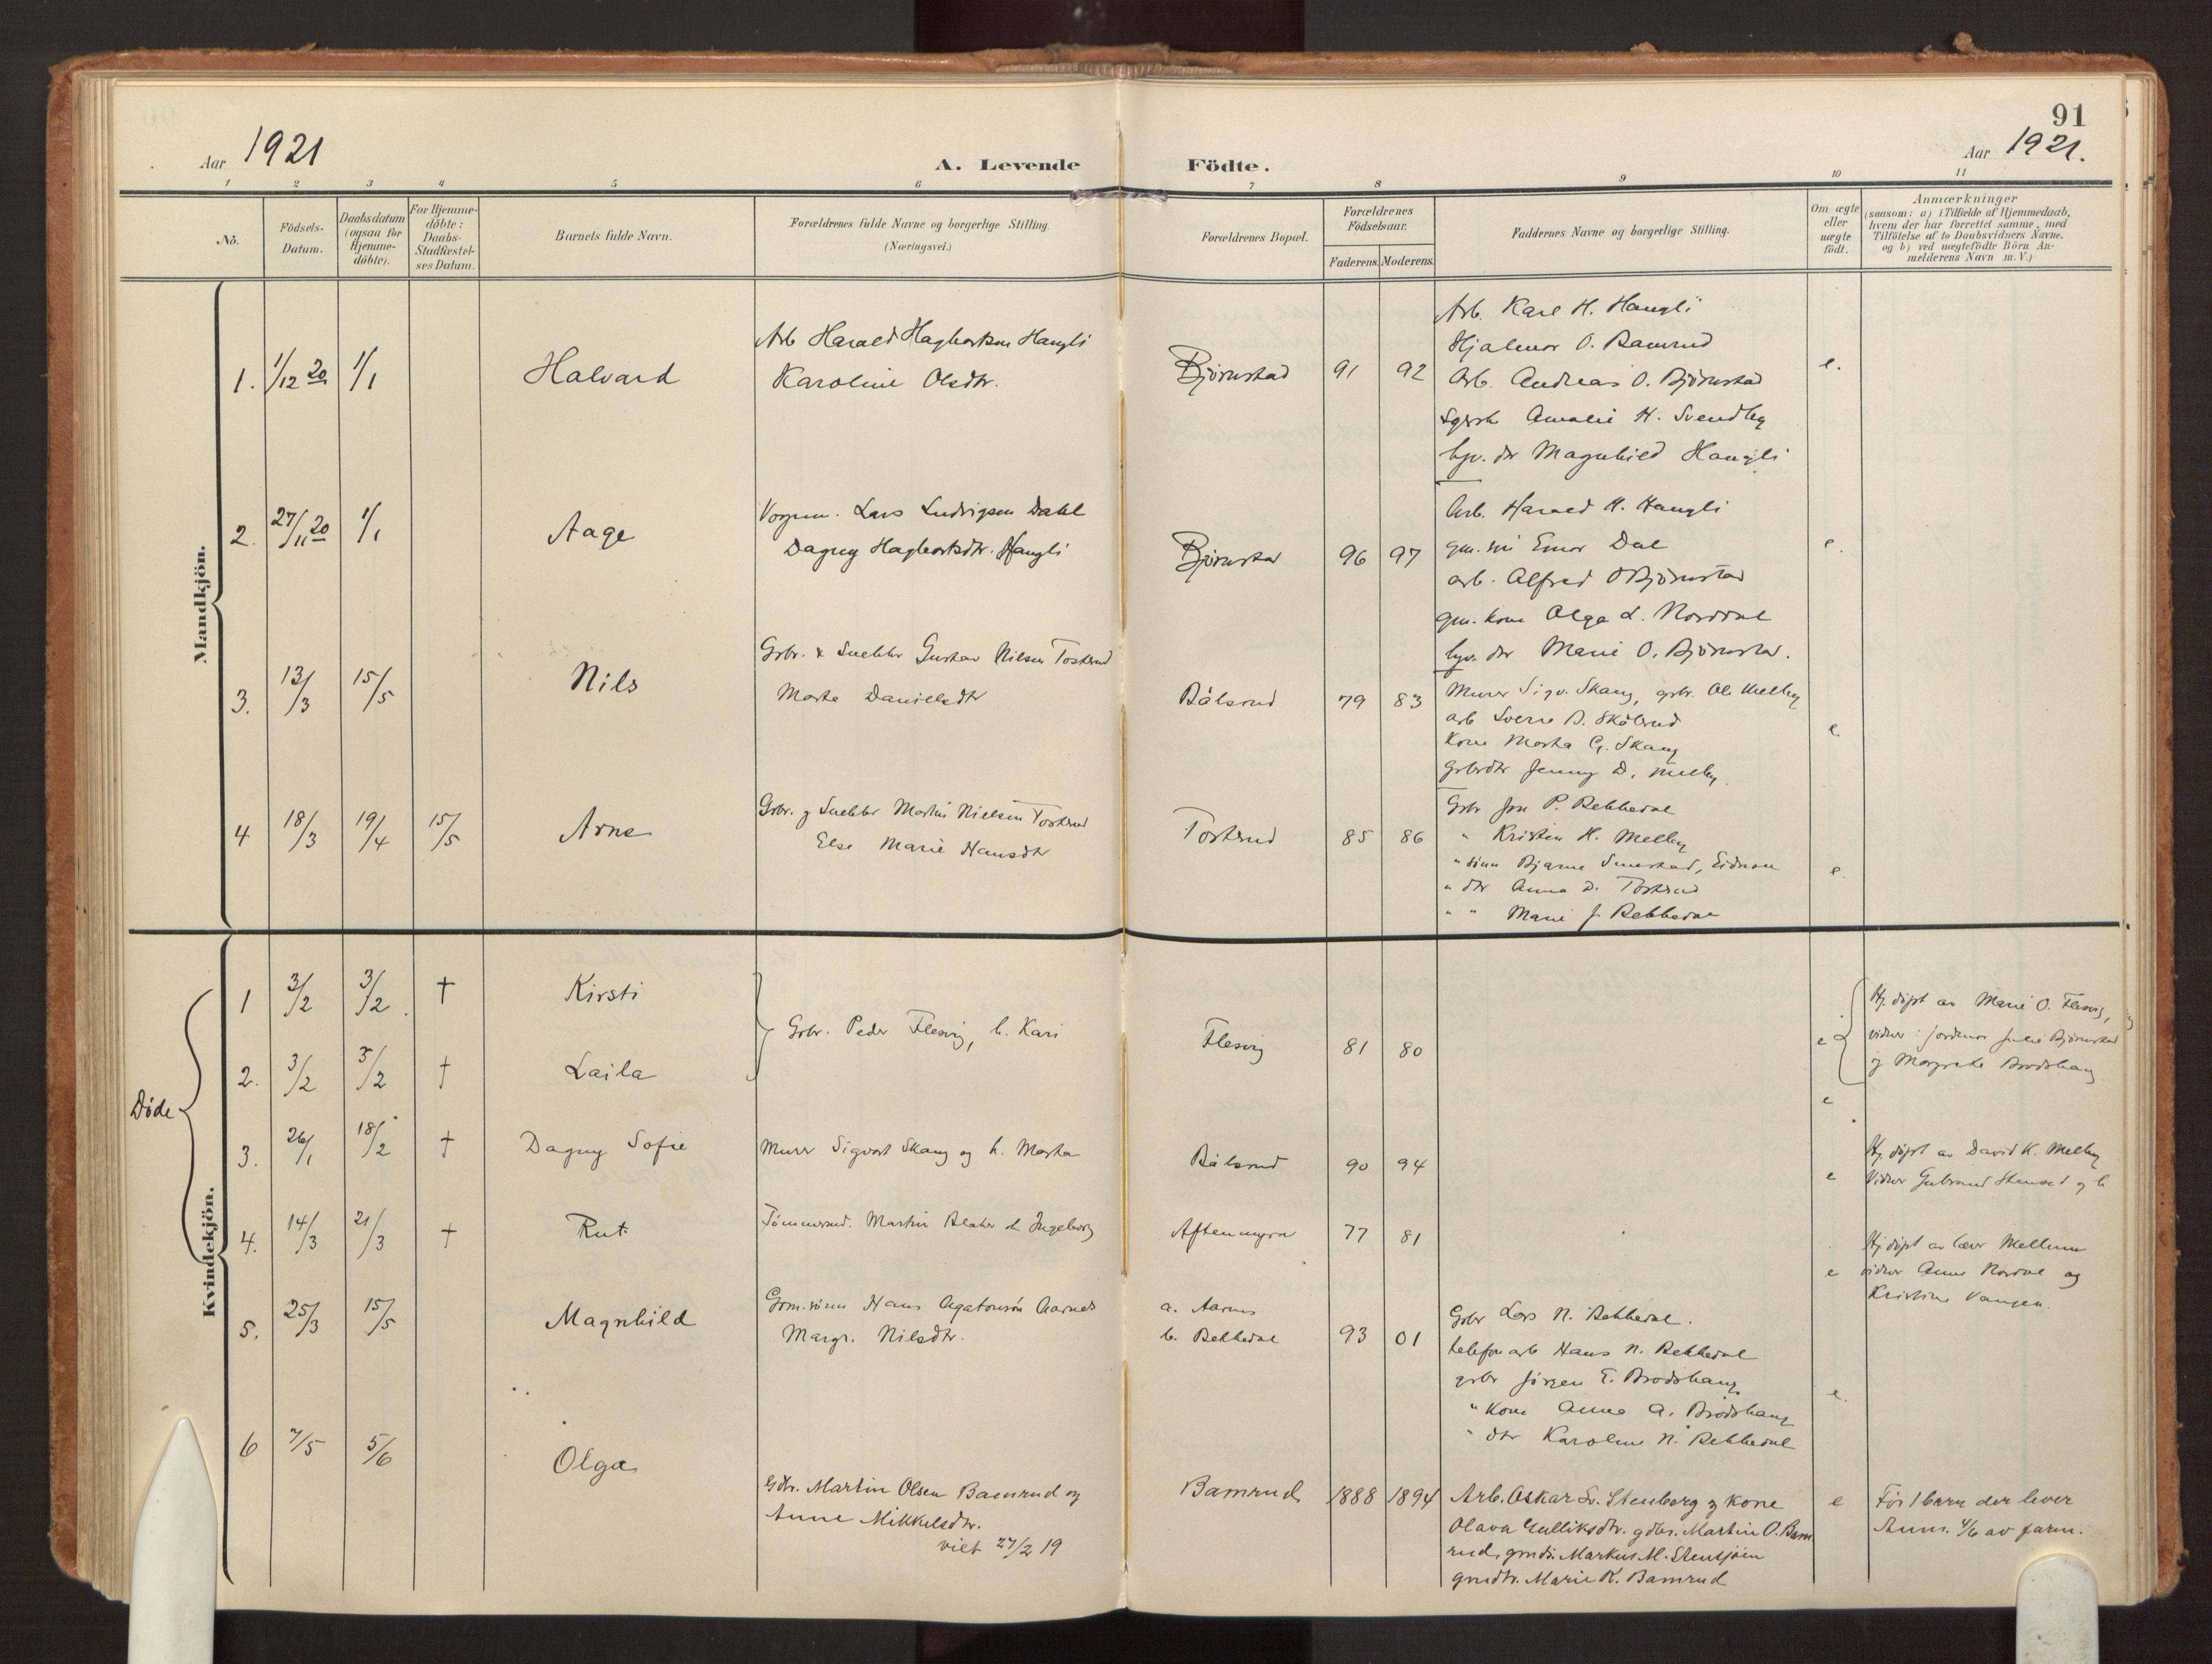 91
Aar 1921
A. Levende Födte.
Aar 1921.
1 2 3 4 5 6 7 8 9 10 11
No.
Födsels-Datum.
Daabsdatum (ogsaa for Hjemme-döbte).
For Hjemme-döbte: Daabs-Stadfæstel-ses Datum.
Barnets fulde Navn.
Forældrenes fulde Navne og borgerlige Stilling. (Næringsvei.)
Forældrenes Bopæl.
Forældrenes Födselsaar.
Faderens. Moderens.
Faddernes Navne og borgerlige Stilling.
Om ægte eller uægte födt.
Anmærkninger
(saasom: a) i Tilfælde af Hjemmedaab,
hvem der har forrettet samme, med
Tilföielse af to Daabsvidners Navne.
og b) ved uægtefödte Börn An-
melderens Navn m. V.)
Mandkjön.
1. 1/12 20 1/1 Halvard
Arb Harald Hagbartsen Haugli
Karoline Olsdtr.
Björnstad 91 92
Arb. Karl H. Haugli
Hjalmar O. Bamrud
Arb. Andreas O. Björnstad
Amalie H. Svendby
dr Magnhild Haugli
e.
2. 27/11 20 1/1 Aage
Lars Ludvigsen Dahl
Dagny Hagbartsdtr. Haugli
Björnstad 96 97
Arb. Harald H. Haugli
gm. Einar Dal
arb. Alfred O Björnstad
gm. kone Olga L. Norddal
dr Marie O. Björnstad.
e.
3. 13/3 15/5 Nils
Grbr. & Snekker Gustav Nilsen Tostrud
Marta Danielsdtr
Bålsrud 79 83
Murer Sigv. Skaug, grbr. Ole Melby
arb Sverre B. Skålsrud
Kone Marta G. Skaug
Grbrdtr Jenny D. Melby.
e.
4 18/3 19/4 15/5 Arne
Grbr. og Snekker Martin Nielsen Tostrud
Else Marie Hansdtr
Tostrud 85 86
Grbr Jon P. Rekkedal
" Kristen H. Melby
" sönn Bjarne Smestad, Eidnem
" dtr Anna D. Tostrud
" " Marie J Rekkedal
e.
Kvindekjön.
Döde
1 3/2 3/2 † Kirsti
Grbr. Peder Flesvig, h. Kari
Flesvig 81 80
e
Hj. döpt av Marie O. Flesvig,
vidner: jordmor Julie Björnstad
og Margrete Brodshaug
2. 3/2 3/2 † Laila
e
3. 26/1 18/2 † Dagny Sofie
Murer Sigvart Skaug og h. Marta
Bålsrud 90 94
e
Hj. döpt av David K. Melby
Vidner Gulbrand Stensrud og h.
4. 14/3 21/3 † Rut
Tömmermd. Martin h Ingeborg
Aftenmyra 77 81
e
Hj döpt av lærer Mellum
vidner Anne Nordal og
Kristine Vangen.
5. 25/3 15/5 Magnhild
Grm. sönn Hans Agatonsön Aarnes
Margr. Nilsdtr.
a. Aarnes
b. Rekkedal 93 01
Grbr Lars N. Rekkedal.
telefonarb Hans N. Rekkedal
grbr Jörgen E. Brodshaug
" Kone Anna A. Brodshaug
" dtr Karoline N. Rekkedal
e.
6 7/5 5/6 Olga
Gdbr. Martin Olsen Bamrud og
Anne Mikkelsdtr.
viet 27/2 19
Bamrud 1888 1894
Arb. Oskar Sv. Stenberg og kone
Olava Gulliksdtr. gdbr. Martin O. Bam
rud, gmds. Markus M. Stensjöen
gmdtr. Marie K. Bamrud
e
För 1 barn der lever
Anm. 4/6 av farm.